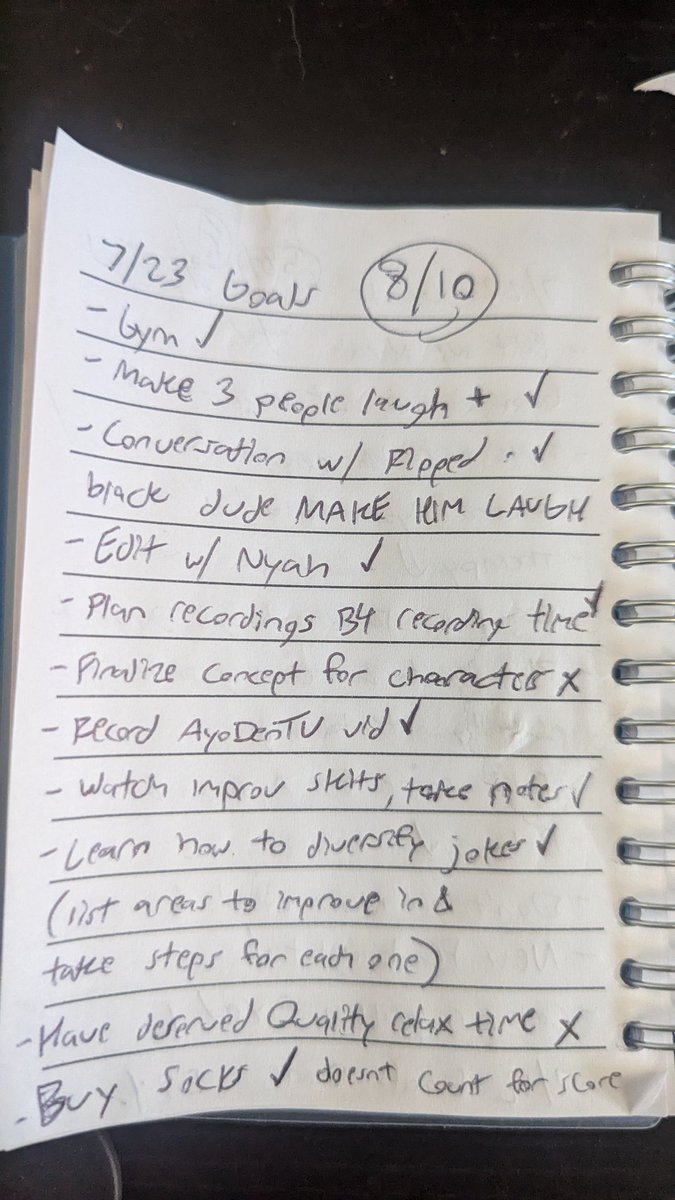 7/23 Goals 8/10
- Gym ✓
- Make 3 people laugh + ✓
- Conversation w/ Ripped . ✓
black dude MAKE HIM LAUGH
- Edit w/ Nyah ✓
- Plan recordings B4 recording time ✓
- Finalize concept for characters x
- Record AyoDenTV vid ✓
- Watch improv skits, take notes ✓
- Learn how to diversify jokes ✓
(list areas to improve in &
take steps for each one)
- Have deserved Quality relax time x
- Buy socks ✓ doesnt count for score